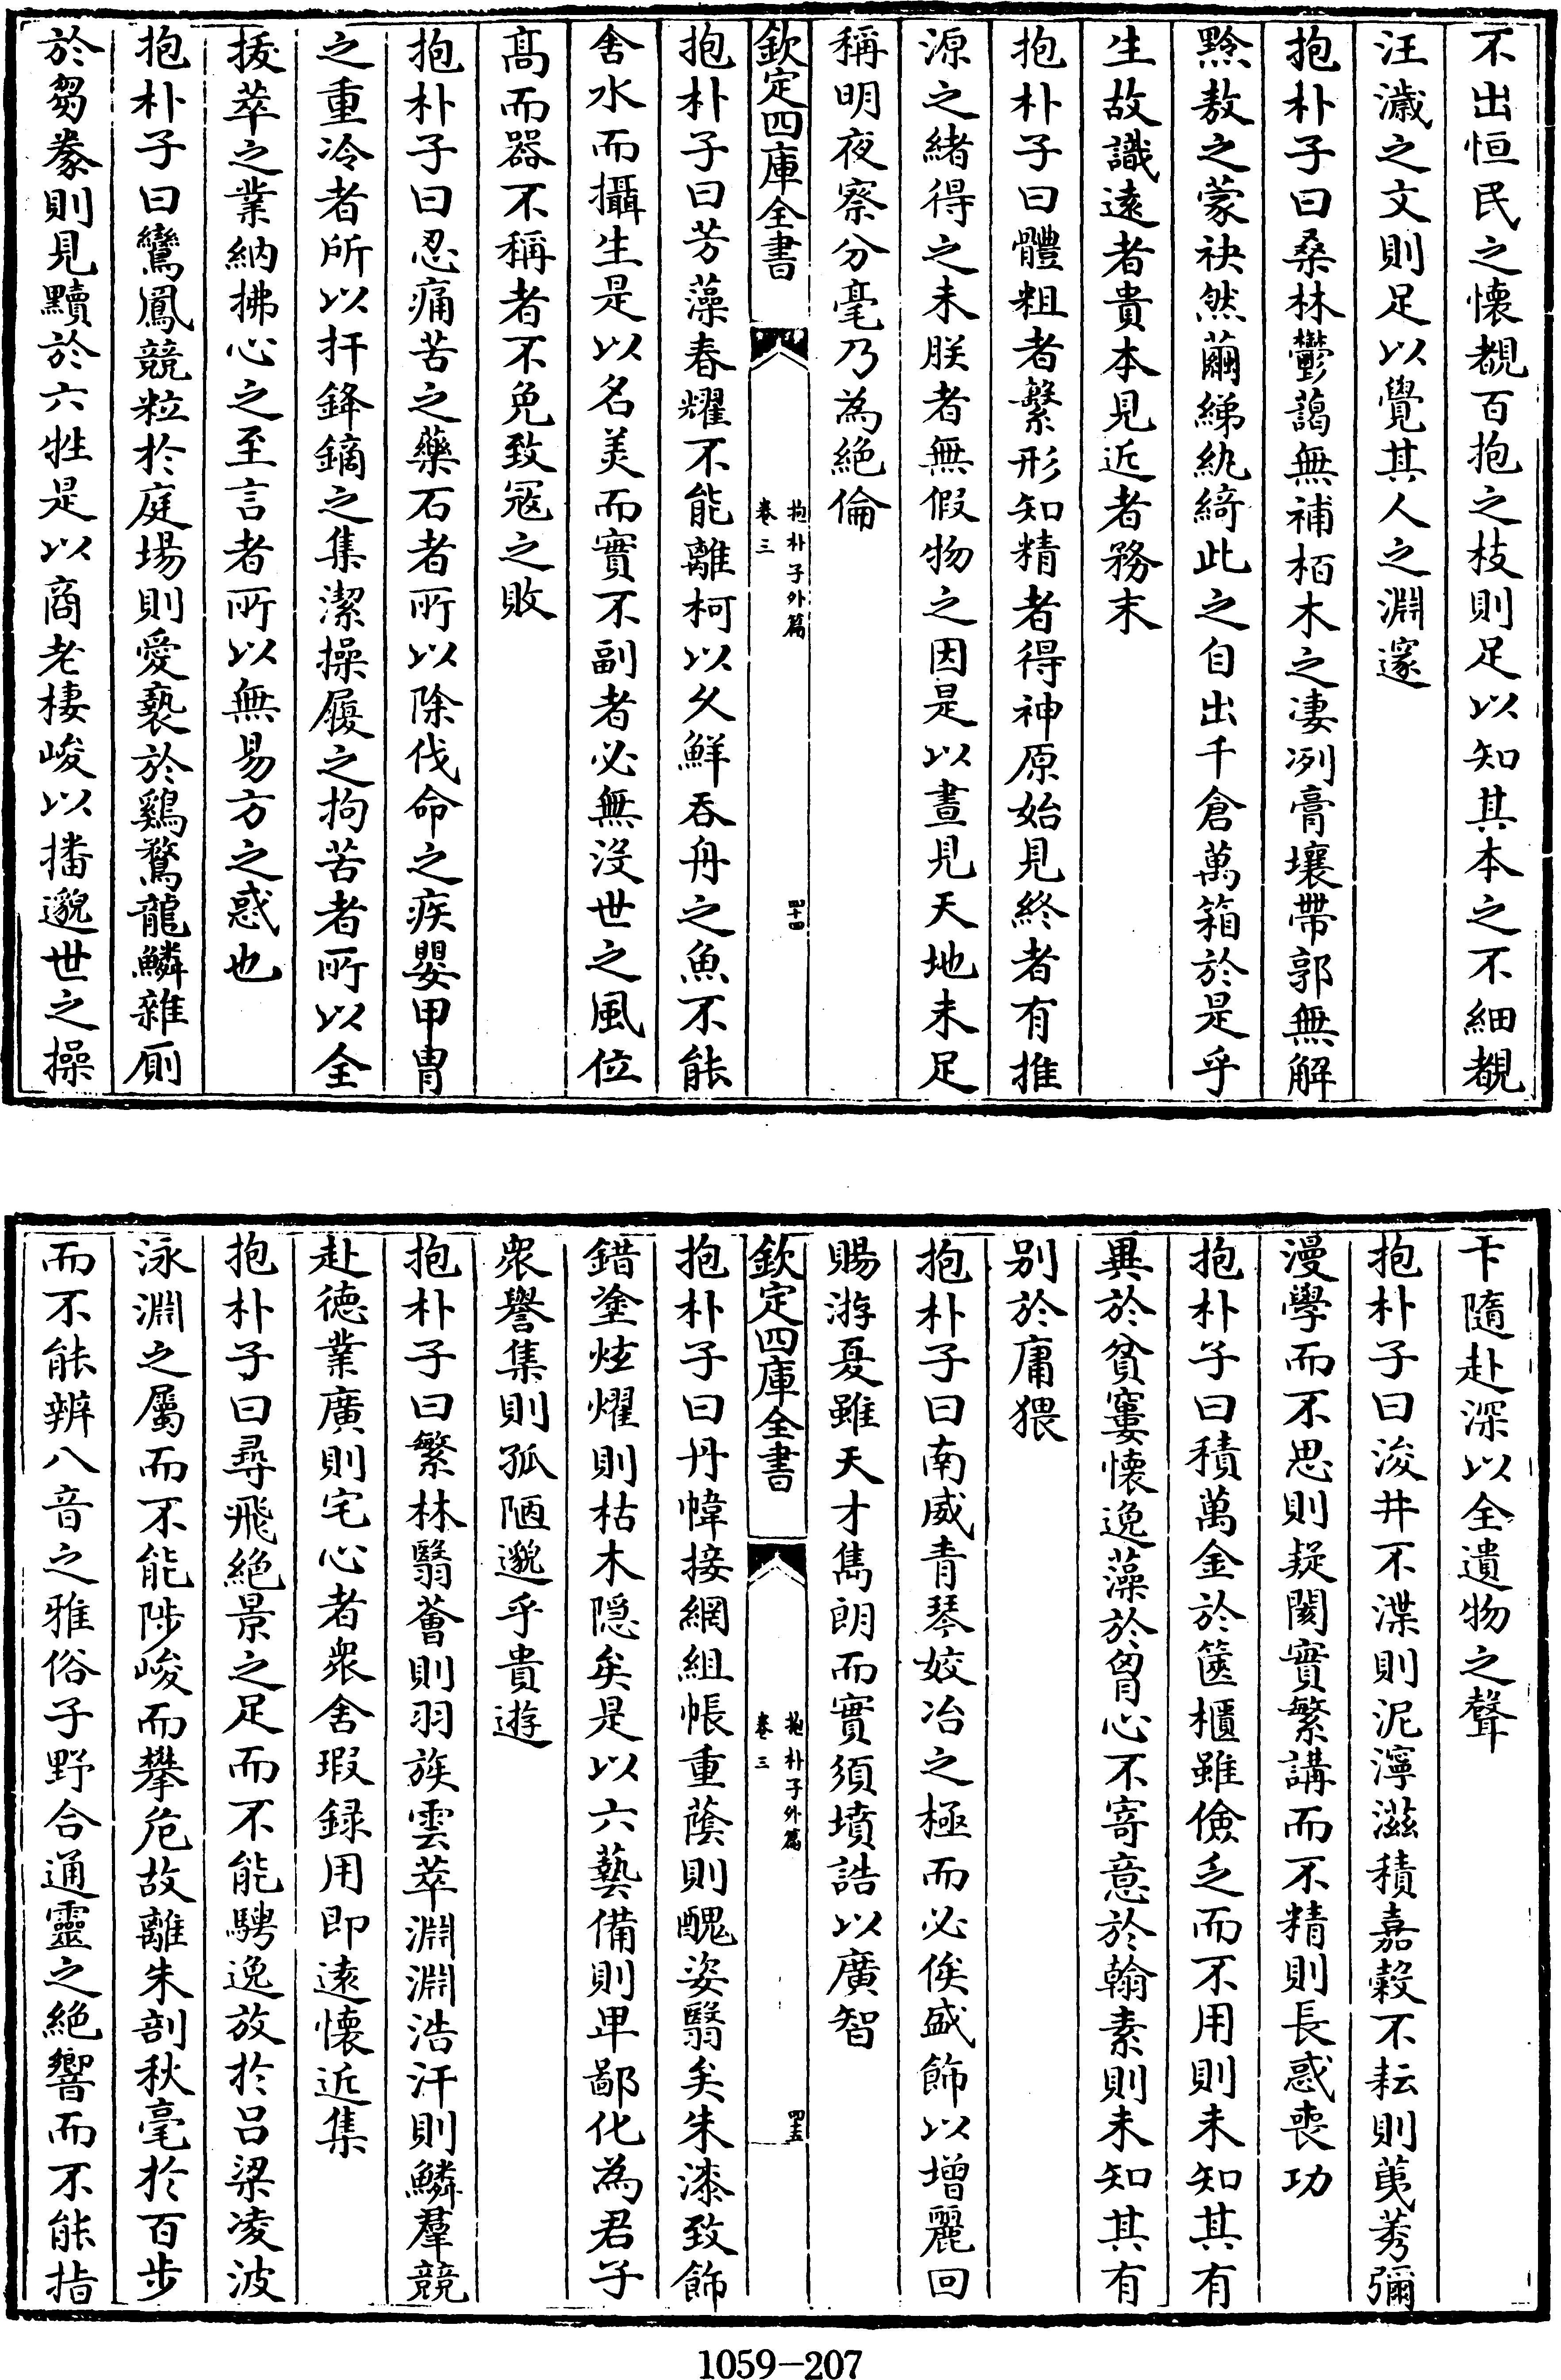 不出恒民之懷覩百抱之枝則足以知其本之不細覩
汪濊之文則足以覺其人之淵邃
抱朴子曰桑林鬱藹無補栢木之凄冽膏壤帶郭無解
黔敖之蒙袂然繭綈紈綺此之自出千倉萬箱於是乎
生故識遠者貴本見近者務末
抱朴子曰體粗者繫形知精者得神原始見終者有推
源之緒得之未朕者無假物之因是以晝見天地未足
稱明夜察分毫乃為絶倫
欽定四庫全書
抱朴子外篇
卷三
四十四
抱朴子曰芳藻春耀不能離柯以久鮮吞舟之魚不能
舍水而攝生是以名美而實不副者必無沒世之風位
髙而器不稱者不免致冦之敗
抱朴子曰忍痛苦之藥石者所以除伐命之疾嬰甲胄
之重冷者所以扞鋒鏑之集潔操履之拘苦者所以全
拔萃之業納拂心之至言者所以無易方之惑也
抱朴子曰鸞鳳競粒於庭場則愛褻於鷄鶩龍鱗雜厠
於芻豢則見黷於六牲是以商老棲峻以播邈世之操
卞隨赴深以全遺物之聲
抱朴子曰浚井不渫則泥濘滋積嘉穀不耘則荑莠彌
漫學而不思則疑閡實繁講而不精則長惑喪功
抱朴子曰積萬金於篋櫃雖儉乏而不用則未知其有
異於貧窶懷逸藻於胷心不寄意於翰素則未知其有
别於庸猥
抱朴子曰南威青琴姣冶之極而必俟盛飾以增麗回
賜游夏雖天才雋朗而實須墳誥以廣智
欽定四庫全書
抱朴子外篇
卷三
四十五
抱朴子曰丹幃接網組帳重蔭則醜姿翳矣朱漆致飾
錯塗炫燿則枯木隠矣是以六藝備則卑鄙化為君子
衆譽集則孤陋邈乎貴遊
抱朴子曰繁林翳薈則羽族雲萃淵淵浩汗則鱗羣競
赴德業廣則宅心者衆舍瑕録用即逺懷近集
抱朴子曰尋飛絶景之足而不能騁逸放於吕梁凌波
泳淵之屬而不能陟峻而攀危故離朱剖秋毫於百步
而不能辨八音之雅俗子野合通靈之絶響而不能指
1059-207